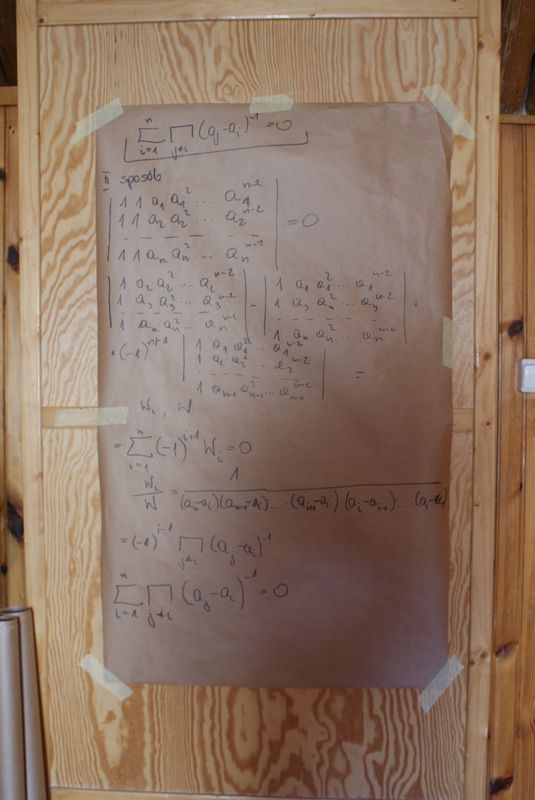 n
∑ ∏ (aj-ai)⁻¹ = 0
i=1 j≠i
II sposób
1 1 a₁ a₁² ... a₁ⁿ⁻²
1 1 a₂ a₂² ... a₂ⁿ⁻² = 0
1 1 aₙ aₙ² ... aₙⁿ⁻²
1 a₂ a₂² ... a₂ⁿ⁻² - 1 a₁ a₁² ... a₁ⁿ⁻²
1 a₃ a₃² ... a₃ⁿ⁻² 1 a₃ a₃² ... a₃ⁿ⁻² + ...
1 aₙ aₙ² ... aₙⁿ⁻² 1 aₙ aₙ² ... aₙⁿ⁻²
+ (-1)ⁿ⁺¹ 1 a₁ a₁² ... a₁ⁿ⁻²
1 a₂ a₂² ... a₂ⁿ⁻² =
1 aₙ₋₁ aₙ₋₁² ... aₙ₋₁ⁿ⁻²
Wi , W
n
= ∑ (-1)ⁱ⁺¹ Wi = 0
i=1
Wi/W = 1/((aₙ-ai)(aₙ₋₁-ai)·...·(ai+1-ai)·(ai-ai-1)·...
= (-1)ⁱ⁻¹ ∏ (aj-ai)⁻¹
j≠i
n
∑ ∏ (aj-ai)⁻¹ = 0
i=1 j≠i